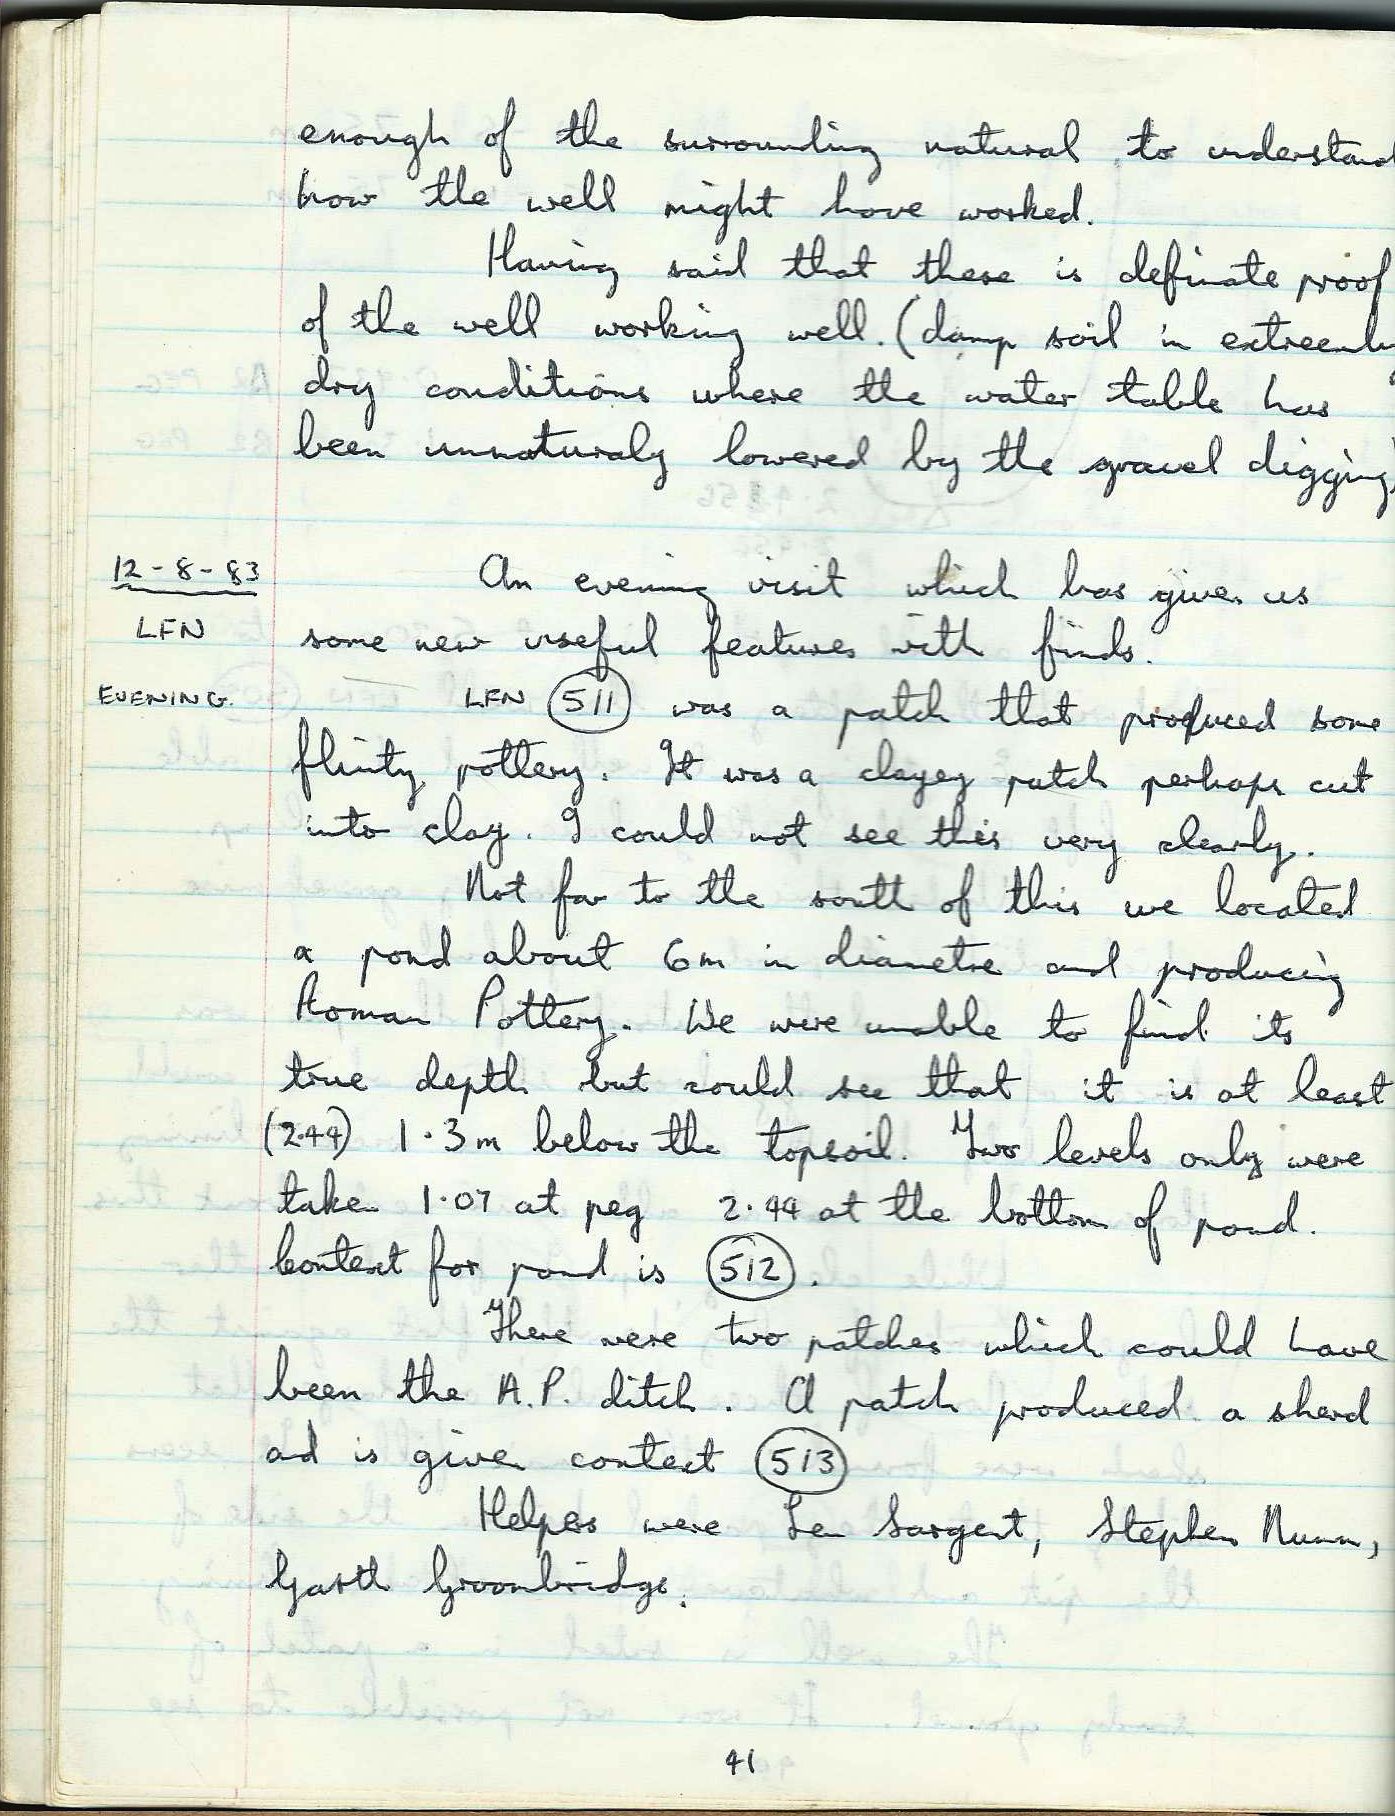 enough of the surrounding natural to understand
how the well might have worked.
Having said that there is definate proof
of the well working well. (damp soil in extreemly
dry conditions where the water table has
been unnaturaly lowered by the gravel digging)
12-8-83
An evening visit which has given us
LFN
some new useful features with finds.
EVENING.
LFN 511 was a patch that produced some
flinty pottery. It was a clayey patch perhaps cut
into clay. I could not see this very clearly.
Not far to the south of this we located
a pond about 6m in diametre and producing
Roman Pottery. We were unable to find its
true depth but could see that it is at least
(2.44) 1.3m below the topsoil. Two levels only were
taken 1.07 at peg 2.44 at the bottom of pond.
Context for pond is 512.
There were two patches which could have
been the A.P. ditch. A patch produced a sherd
ad is given context 513
Helpers were Len Sargent, Stephen Nunn,
Garth Groombridge.
41